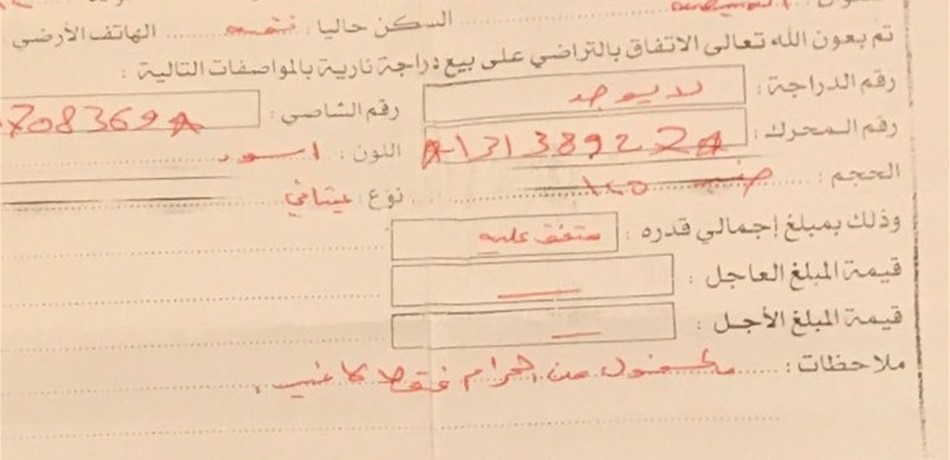 السكن حاليا : نفسه الهاتف الأرضي
تم بعون الله تعالى الاتفاق بالتراضي على بيع دراجة نارية بالمواصفات التالية :
رقم الدراجة : لا يوجد رقم الشاصي : 708369A
رقم المحرك : A-13138922A اللون : اسود
الحجم : ١٥٠ نوع :
وذلك بمبلغ إجمالي قدره : متفق عليه
قيمة المبلغ العاجل :
قيمة المبلغ الأجل :
ملاحظات : مكفول من الحرام فقط